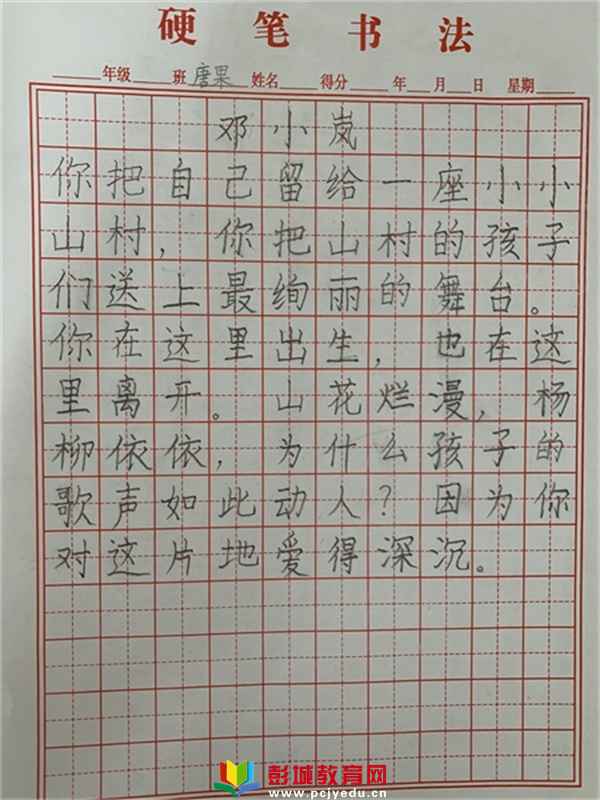 硬笔书法
____年级____班唐果姓名____得分____年__月__日 星期____
邓小岚
你把自己留给一座小小
山村，你把山村的孩子
们送上最绚丽的舞台。
你在这里出生，也在这
里离开。山花烂漫，杨
柳依依，为什么孩子的
歌声如此动人？因为你
对这片地爱得深沉。
彭城教育网
www.pcjyedu.cn